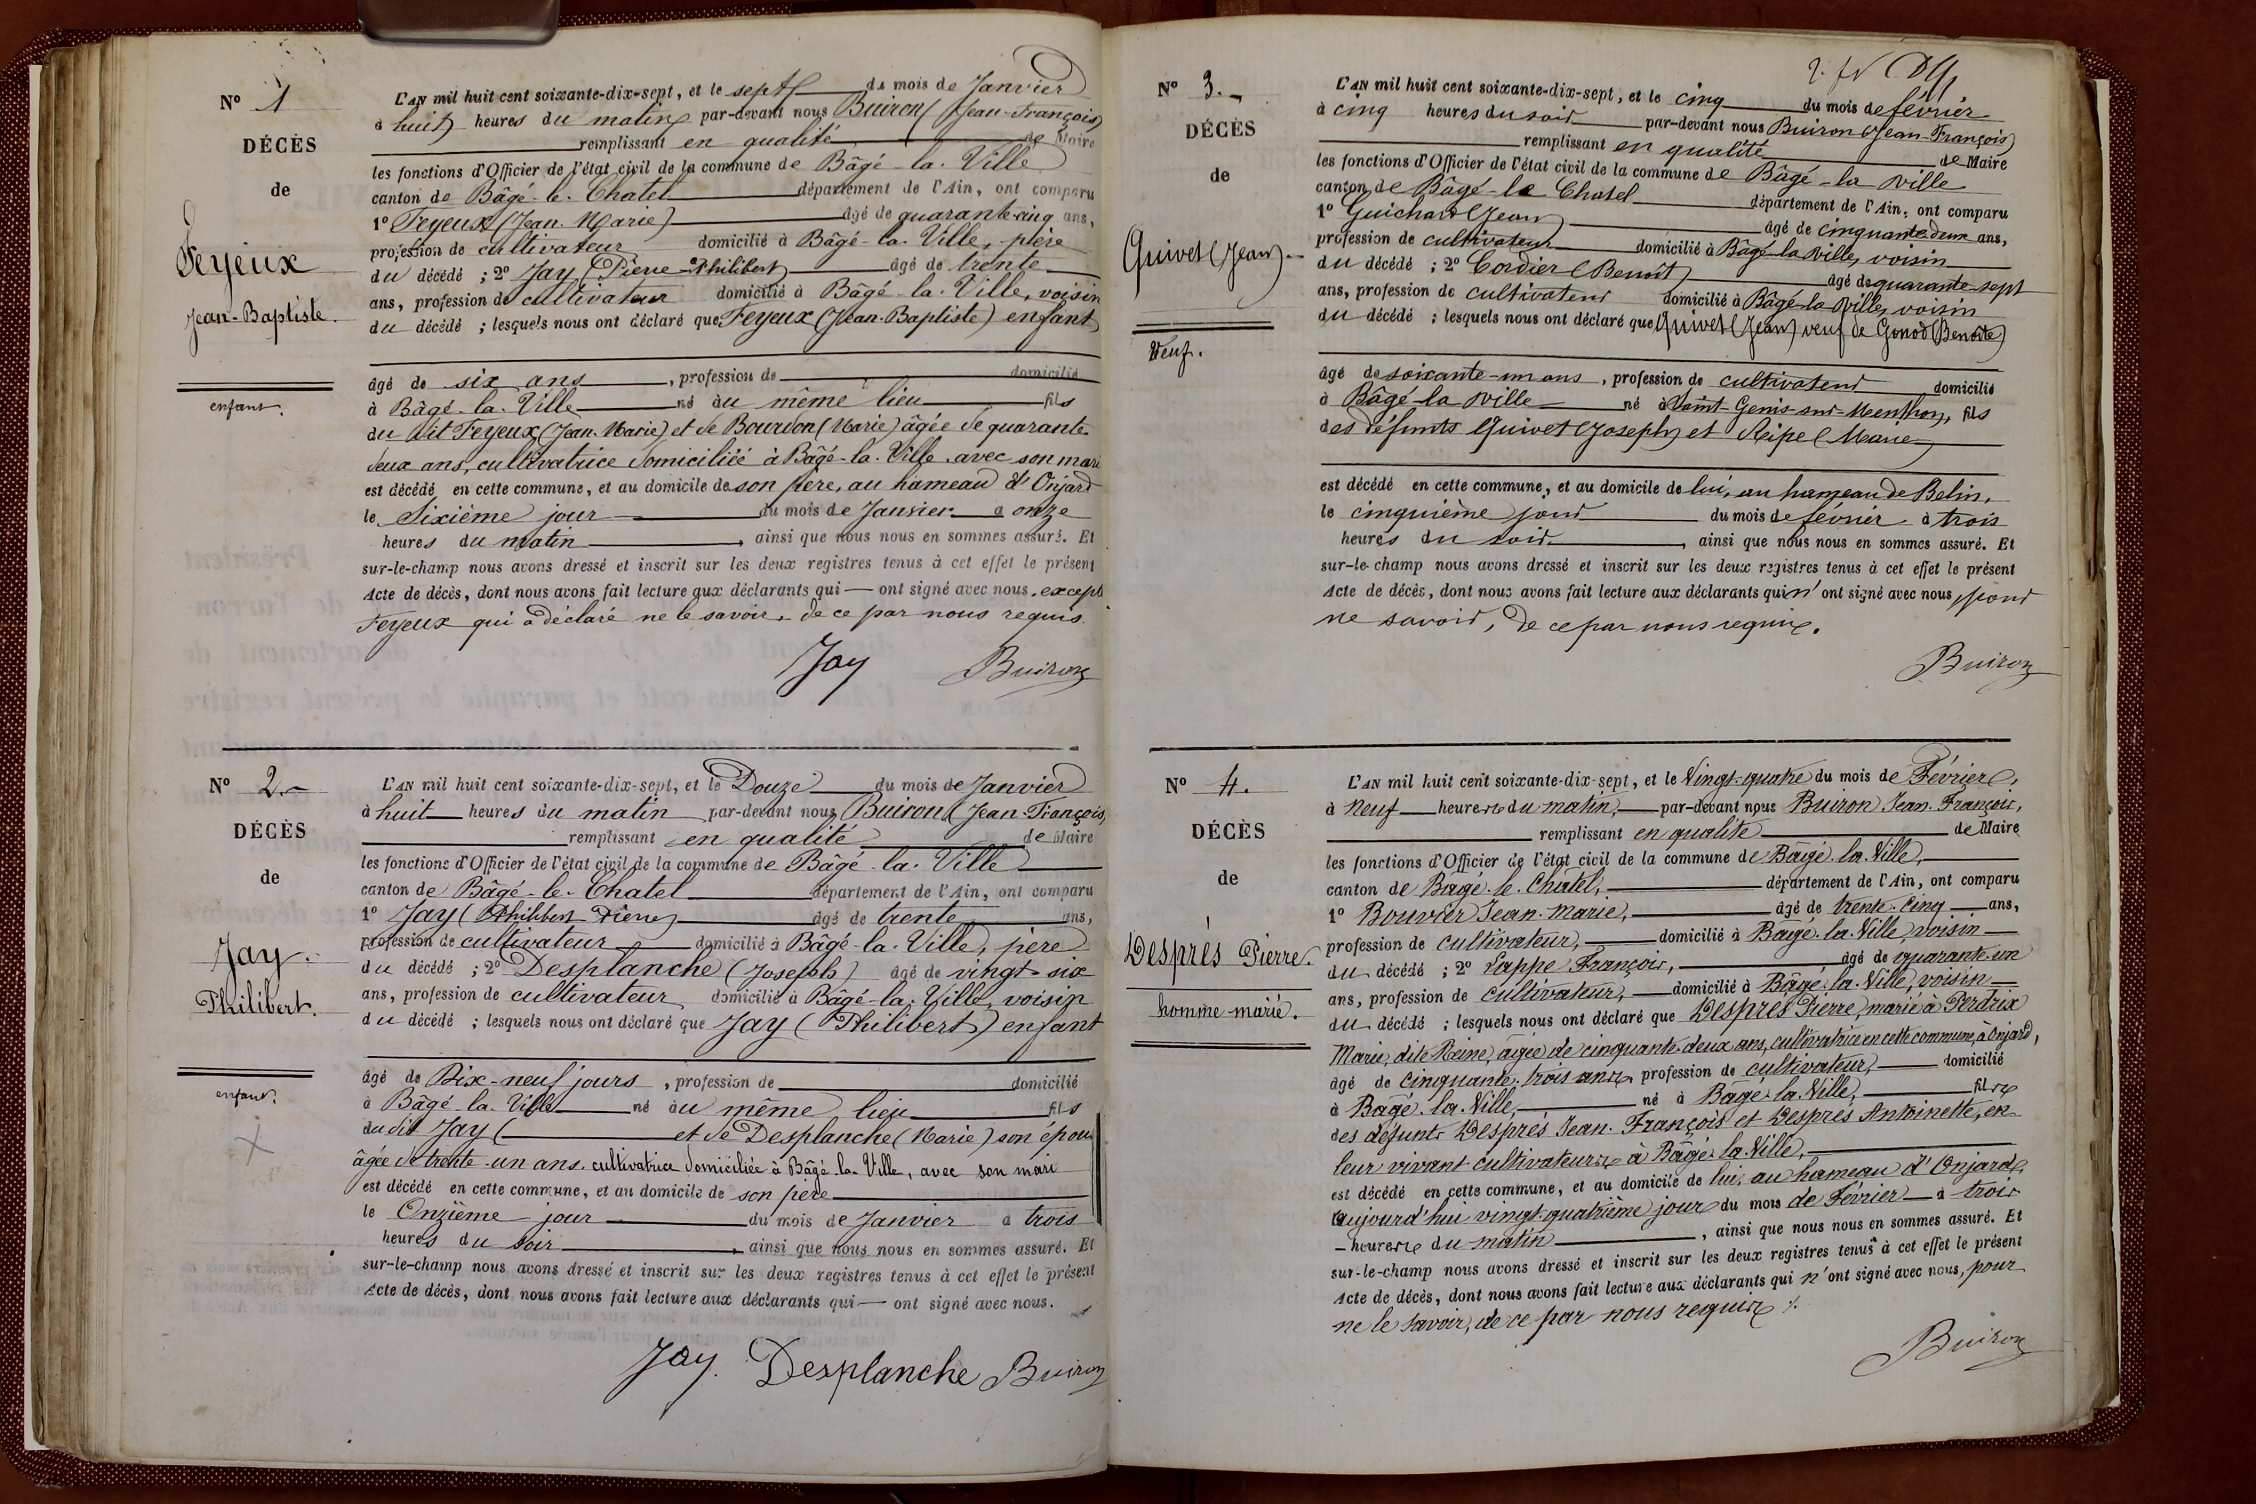 N° 1
DÉCÈS
de
Feyeux
Jean-Baptiste.
enfant.
L'AN mil huit cent soixante-dix-sept, et le sept du mois de Janvier
à huit heures du matin par-devant nous Buiron (Jean-François)
remplissant en qualité de Maire
les fonctions d'Officier de l'état civil de la commune de Bâgé-la-Ville
canton de Bâgé-le-Chatel département de l'Ain, ont comparu
1° Feyeux (Jean-Marie) âgé de quarante-cinq ans,
profession de cultivateur domicilié à Bâgé-la-Ville, père
du décédé ; 2° Jay (Pierre-Philibert) âgé de trente
ans, profession de cultivateur domicilié à Bâgé-la-Ville, voisin
du décédé ; lesquels nous ont déclaré que Feyeux (Jean-Baptiste) enfant
âgé de six ans, profession de domicilié
à Bâgé-la-Ville né au même lieu fils
du dit Feyeux (Jean-Marie) et de Bourdon (Marie) âgée de quarante-
deux ans, cultivatrice domiciliée à Bâgé-la-Ville avec son mari
est décédé en cette commune, et au domicile de son père, au hameau d'Onjard
le Sixième jour du mois de Janvier à onze
heures du matin, ainsi que nous nous en sommes assuré. Et
sur-le-champ nous avons dressé et inscrit sur les deux registres tenus à cet effet le présent
Acte de décès, dont nous avons fait lecture aux déclarants qui ont signé avec nous, except
Feyeux qui a déclaré ne le savoir, de ce par nous requis.
Jay Buiron
N° 2.
DÉCÈS
de
Jay.
Philibert.
enfant.
L'AN mil huit cent soixante-dix-sept, et le Douze du mois de Janvier
à huit heures du matin par-devant nous Buiron (Jean-François)
remplissant en qualité de Maire
les fonctions d'Officier de l'état civil de la commune de Bâgé-la-Ville
canton de Bâgé-le-Chatel département de l'Ain, ont comparu
1° Jay (Philibert-Pierre) âgé de trente ans,
profession de cultivateur domicilié à Bâgé-la-Ville, père
du décédé ; 2° Desplanche (Joseph) âgé de vingt-six
ans, profession de cultivateur domicilié à Bâgé-la-Ville, voisin
du décédé ; lesquels nous ont déclaré que Jay (Philibert) enfant
âgé de Dix-neuf jours, profession de domicilié
à Bâgé-la-Ville né au même lieu fils
du dit Jay ( et de Desplanche (Marie) son épou
âgée de trente-un ans, cultivatrice domiciliée à Bâgé-la-Ville, avec son mari
est décédé en cette commune, et au domicile de son père
le Onzième jour du mois de Janvier à trois
heures du soir, ainsi que nous nous en sommes assuré. Et
sur-le-champ nous avons dressé et inscrit sur les deux registres tenus à cet effet le présent
Acte de décès, dont nous avons fait lecture aux déclarants qui ont signé avec nous.
Jay. Desplanche Buiron
N° 3.
DÉCÈS
de
Guivet (Jean).
Veuf.
L'AN mil huit cent soixante-dix-sept, et le cinq du mois de février
à cinq heures du soir par-devant nous Buiron (Jean-François)
remplissant en qualité de Maire
les fonctions d'Officier de l'état civil de la commune de Bâgé-la-Ville
canton de Bâgé-le-Chatel département de l'Ain, ont comparu
1° Guichard (Jean) âgé de cinquante-deux ans,
profession de cultivateur domicilié à Bâgé-la-Ville, voisin
du décédé ; 2° Cordier (Benoît) âgé de quarante-sept
ans, profession de cultivateur domicilié à Bâgé-la-Ville, voisin
du décédé ; lesquels nous ont déclaré que Guivet (Jean) veuf de Gonod (Benoîte)
âgé de soixante-un ans, profession de cultivateur domicilié
à Bâgé-la-Ville né à Saint-Genis-sur-Menthon, fils
des défunts Guivet (Joseph) et Ripe (Marie)
est décédé en cette commune, et au domicile de lui, au hameau de Belin,
le cinquième jour du mois de février à trois
heures du soir, ainsi que nous nous en sommes assuré. Et
sur-le-champ nous avons dressé et inscrit sur les deux registres tenus à cet effet le présent
Acte de décès, dont nous avons fait lecture aux déclarants qui n'ont signé avec nous, pour
ne savoir, de ce par nous requis.
Buiron
N° 4.
DÉCÈS
de
Desprès Pierre.
homme marié.
L'AN mil huit cent soixante-dix-sept, et le Vingt-quatre du mois de Février,
à neuf heures du matin, par-devant nous Buiron Jean-François,
remplissant en qualité de Maire
les fonctions d'Officier de l'état civil de la commune de Bâgé-la-Ville,
canton de Bâgé-le-Châtel, département de l'Ain, ont comparu
1° Bouvier Jean-Marie, âgé de trente-cinq ans,
profession de cultivateur, domicilié à Bâgé-la-Ville, voisin
du décédé ; 2° Pappe François, âgé de quarante-un
ans, profession de cultivateur, domicilié à Bâgé-la-Ville, voisin
du décédé ; lesquels nous ont déclaré que Desprès Pierre, marié à Perdrix
Marie, dite Reine, âgée de cinquante-deux ans, cultivatrice en cette commune, à Onjard,
âgé de cinquante-trois ans, profession de cultivateur, domicilié
à Bâgé-la-Ville, né à Bâgé-la-Ville, fils
des défunts Desprès Jean-François et Desprès Antoinette, en
leur vivant cultivateurs à Bâgé-la-Ville,
est décédé en cette commune, et au domicile de lui, au hameau d'Onjard,
aujourd'hui vingt-quatrième jour du mois de Février à trois
heures du matin, ainsi que nous nous en sommes assuré. Et
sur-le-champ nous avons dressé et inscrit sur les deux registres tenus à cet effet le présent
Acte de décès, dont nous avons fait lecture aux déclarants qui n'ont signé avec nous, pour
ne le savoir, de ce par nous requis.
Buiron